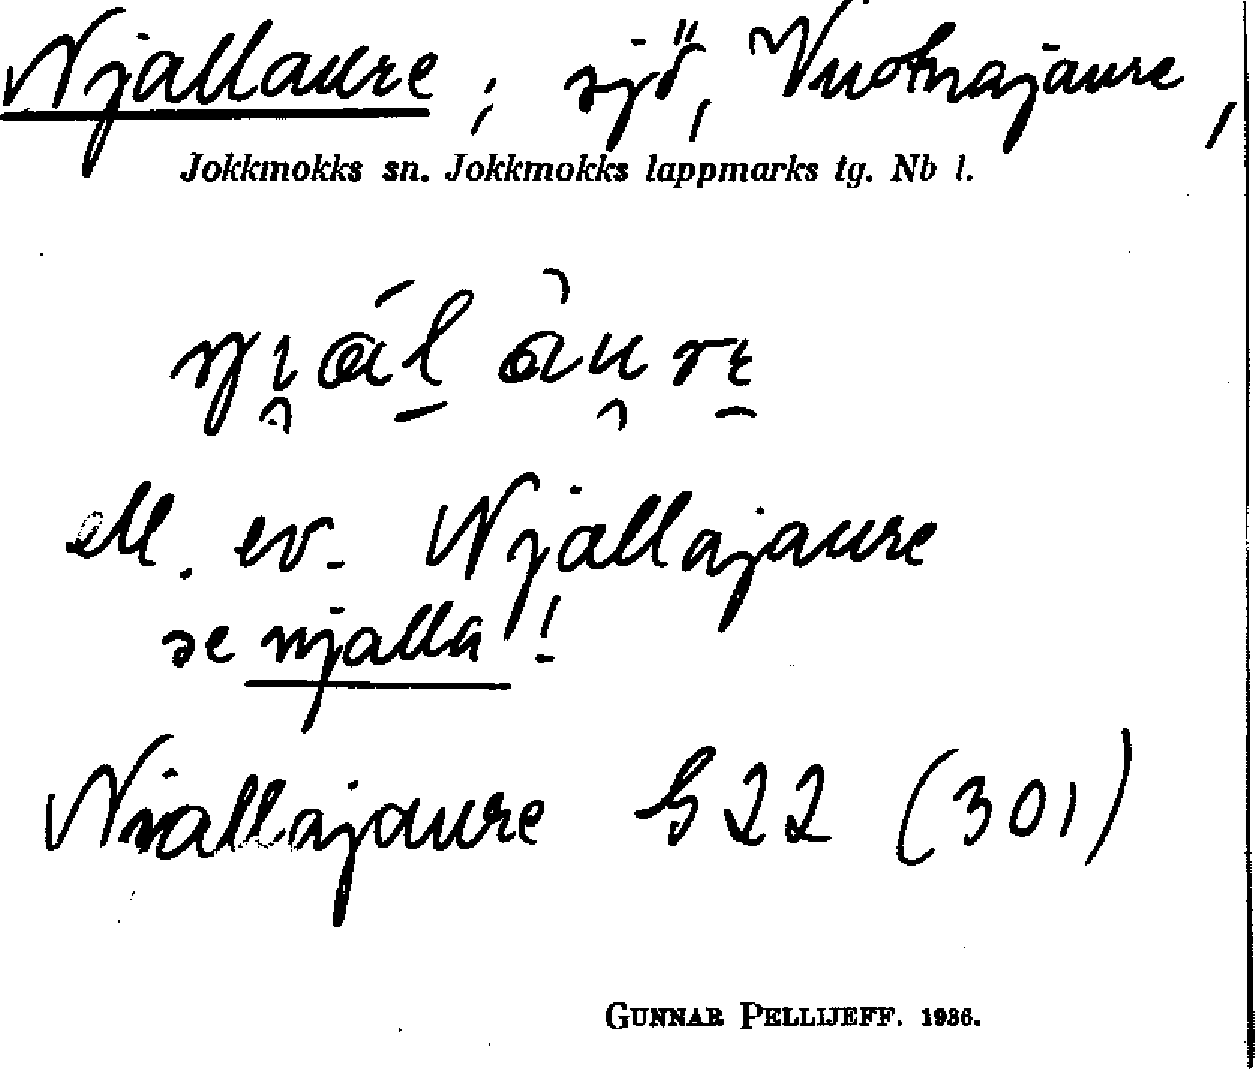 Njallaure, sjö, Vuotnajaure,
Jokkmokks sn. Jokkmokks lappmarks tg. Nb l.
el. ev. Njallajaure
se njalla!
Niallajaure G22 (301)
GUNNAR PELLIJEFF. 1936.